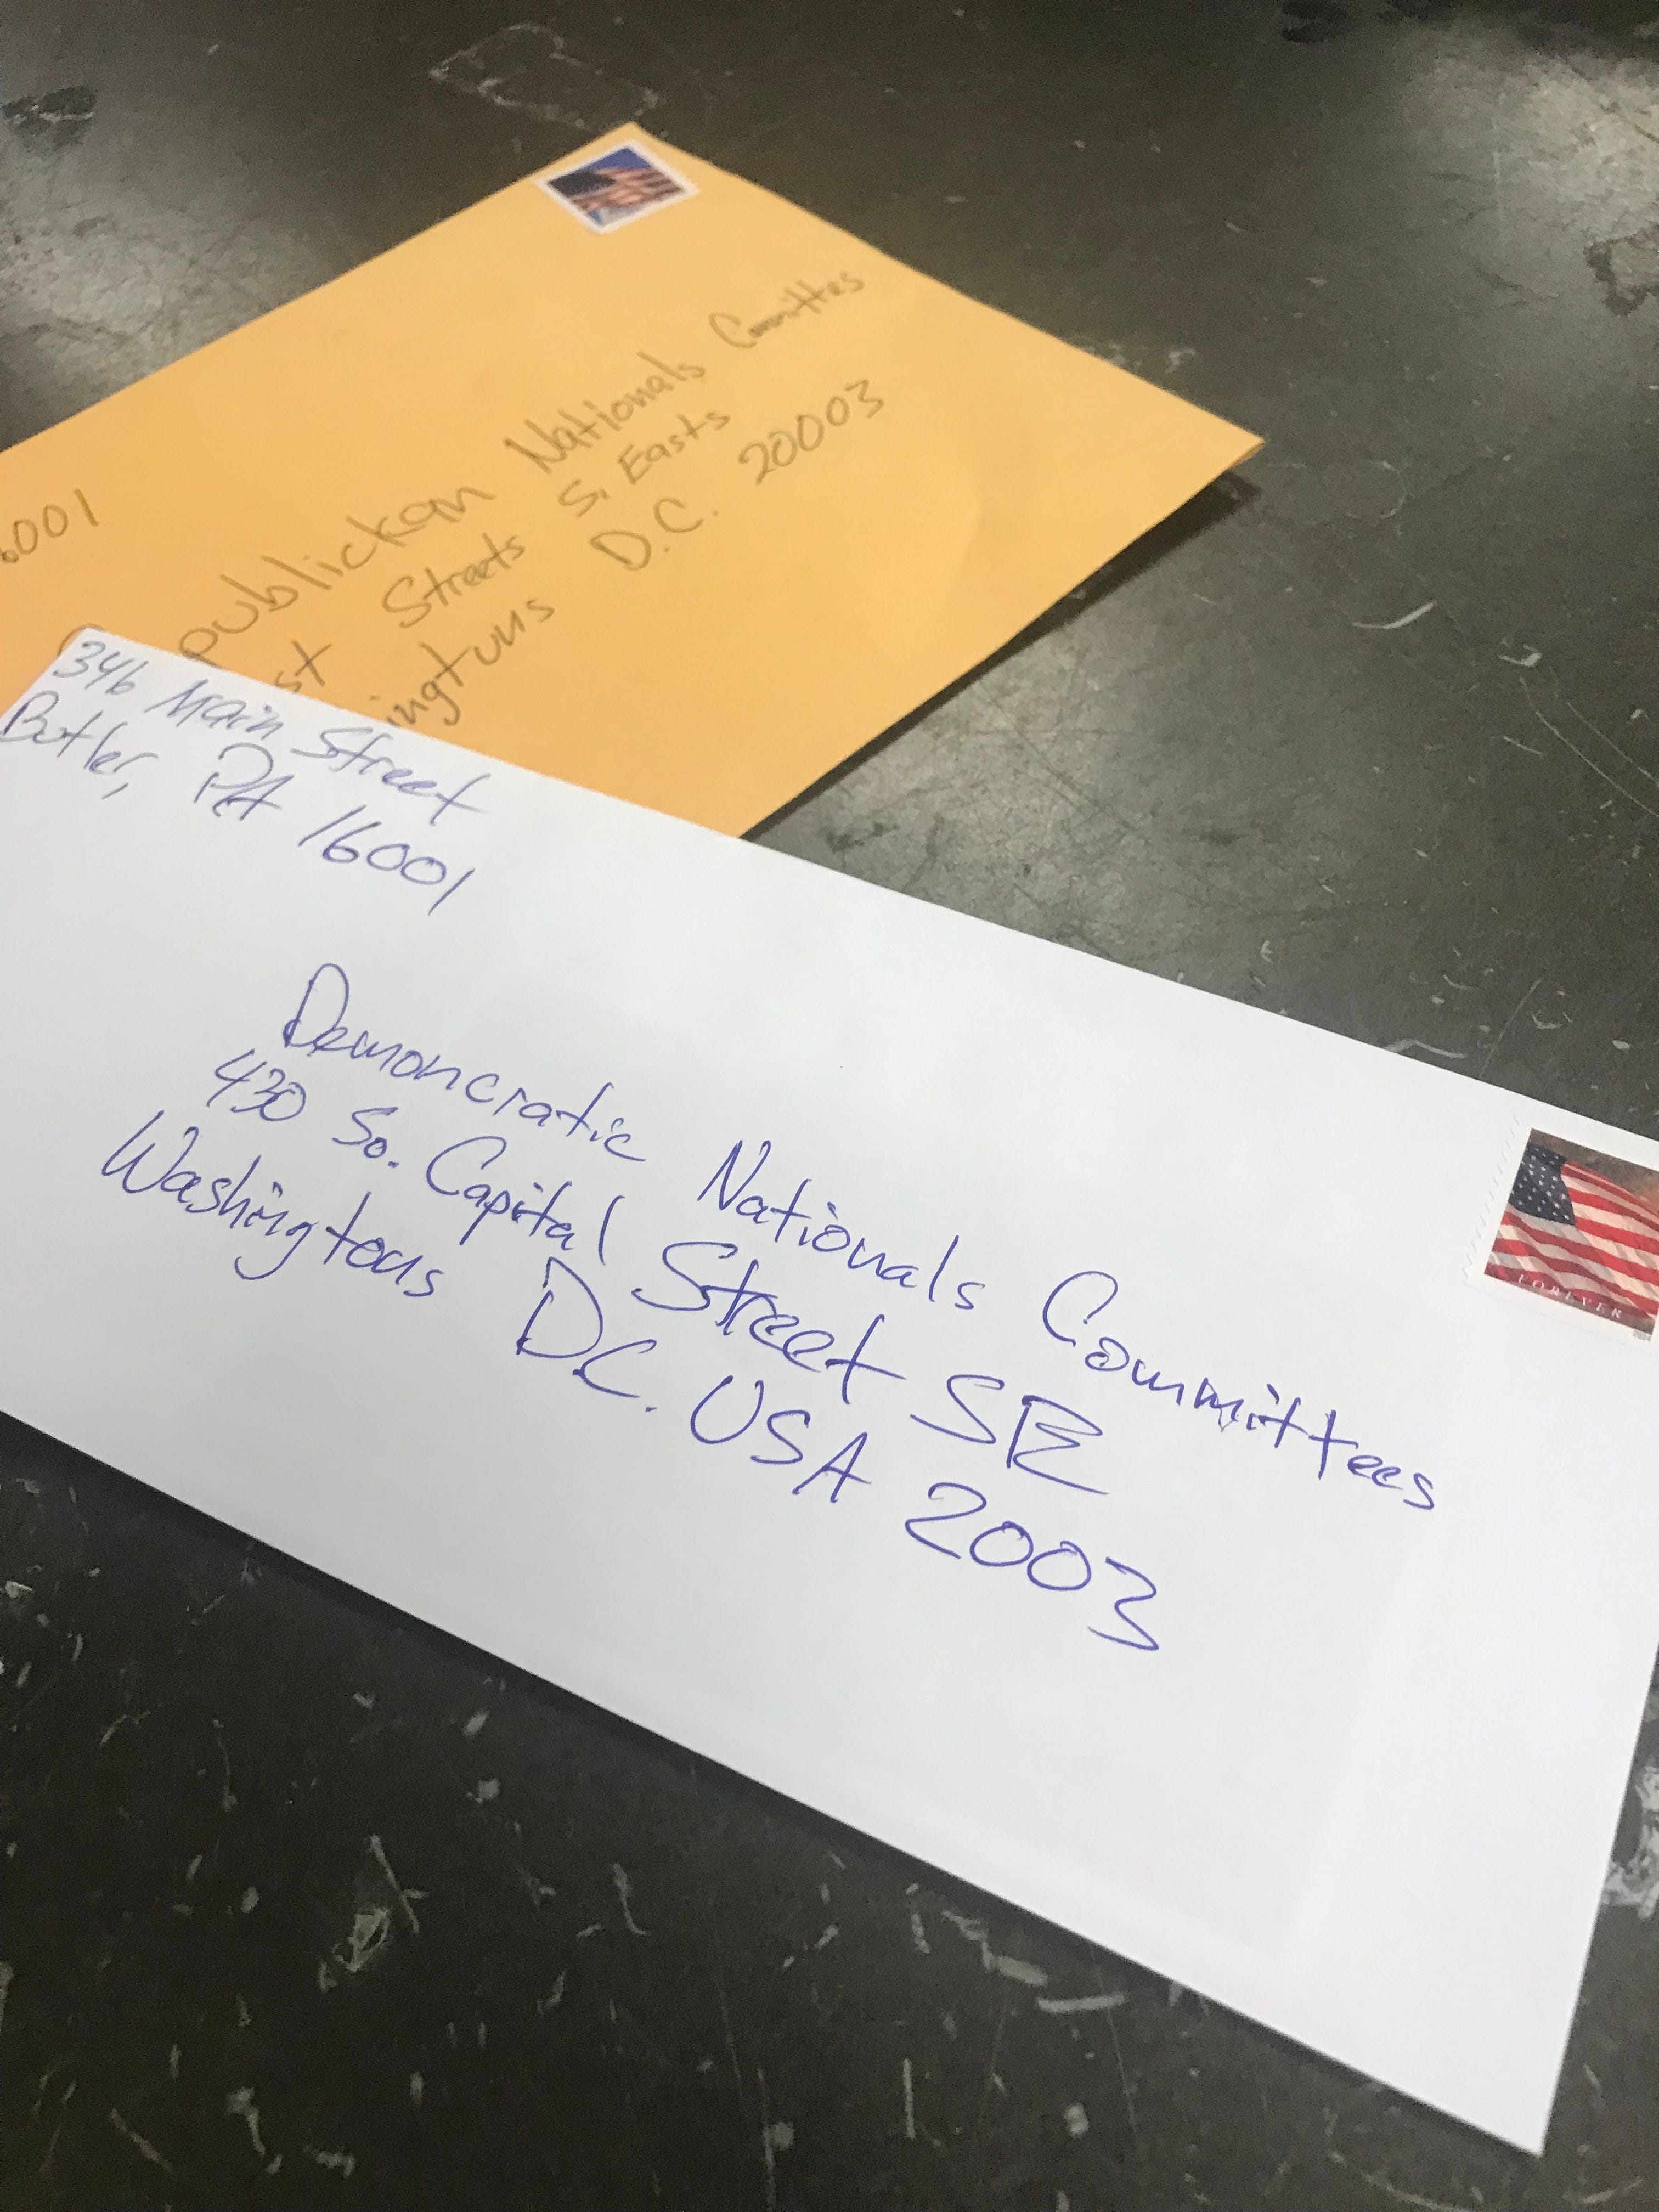 6001
publickan Nationals Committes
st Streets S. Easts
ingtuns D.C. 20003
346 Main Street
Butler, PA 16001
Demoncratic Nationals Committees
430 So. Capital Street SE
Washingtons D.C. USA 2003
FOREVER